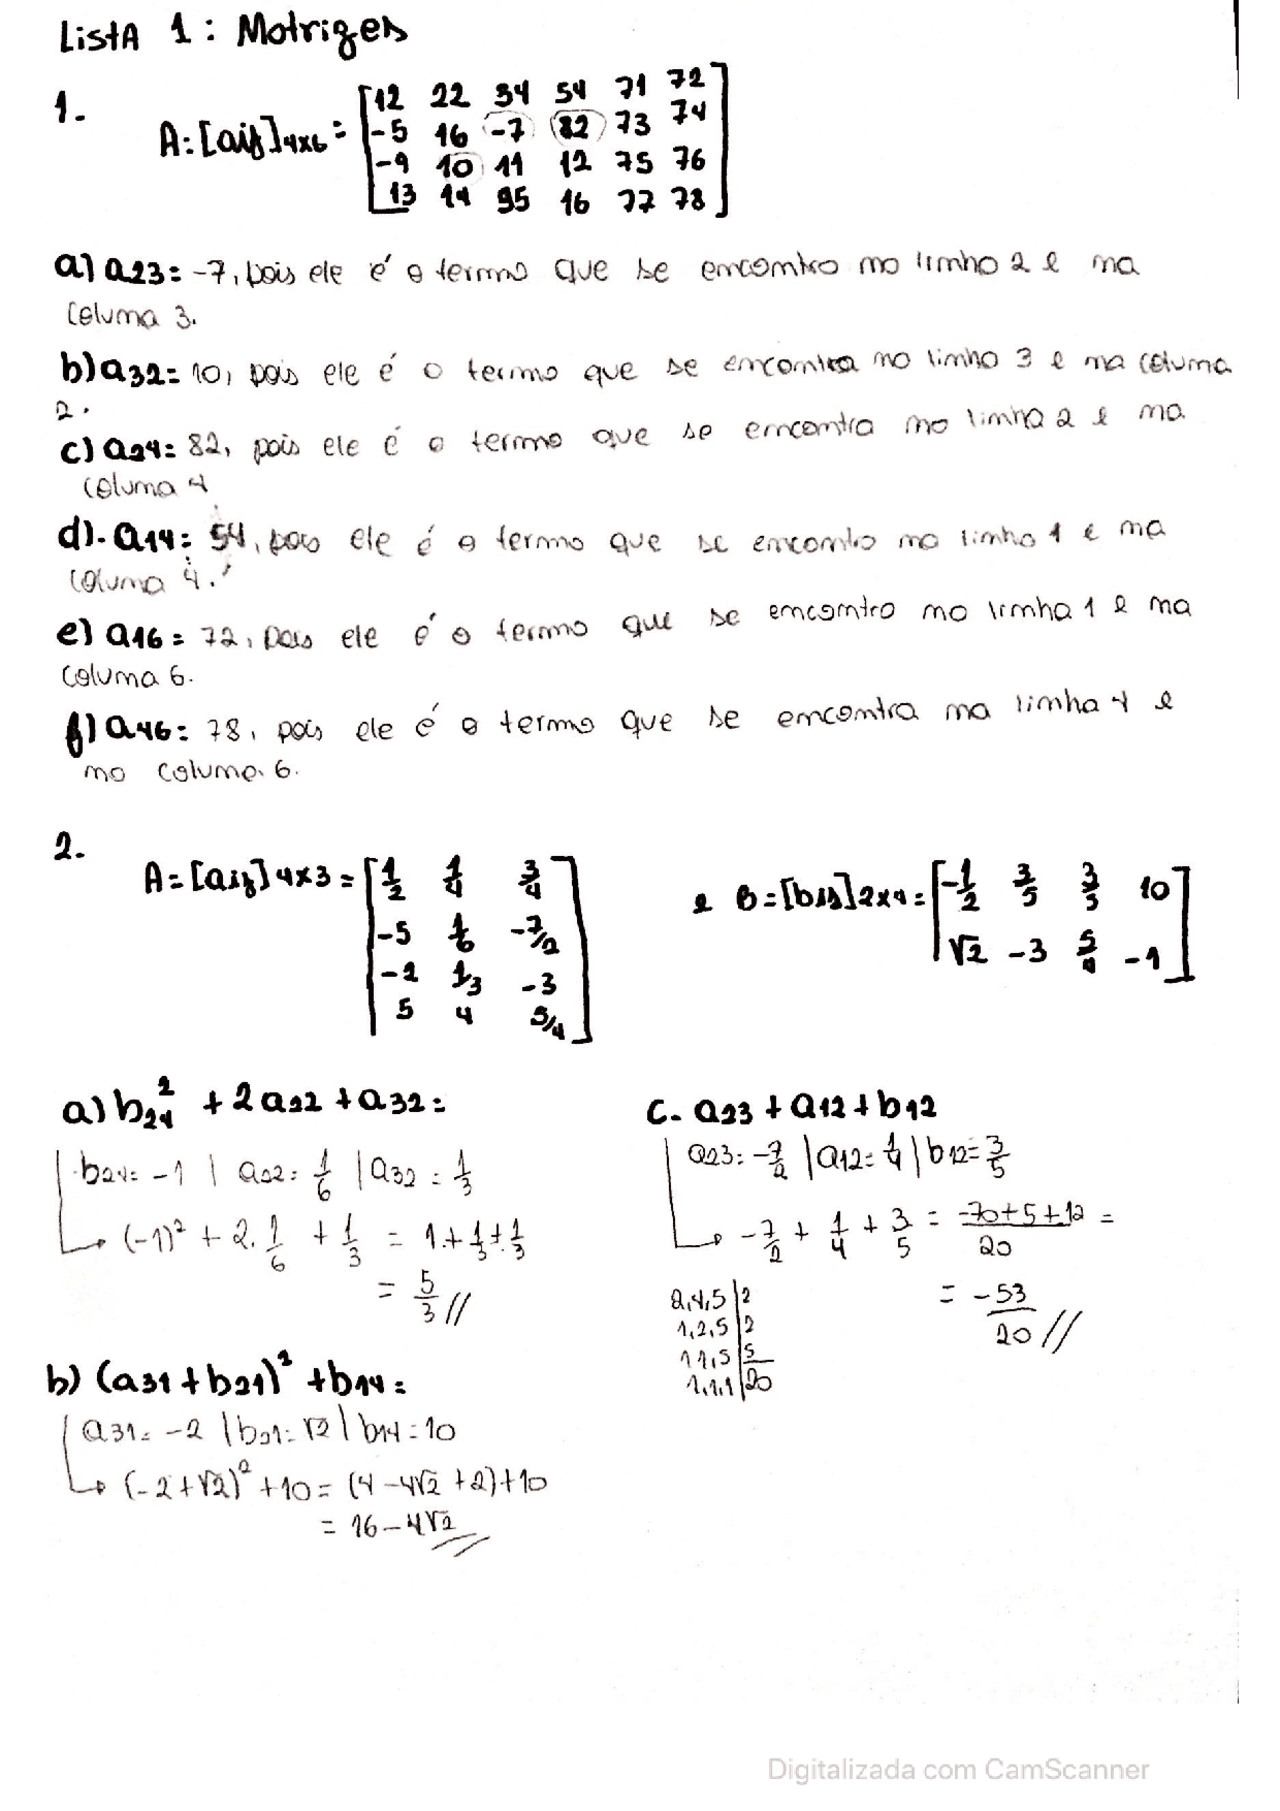 ListA 1: Matrizes
1.
A=[aij]4x6= [12 22 34 54 71 72
-5 16 -7 82 73 74
-9 10 11 12 75 76
13 14 95 16 77 78]
a) a23= -7, pois ele é o termo que se encontra na linha 2 e na
coluna 3.
b) a32= 10, pois ele é o termo que se encontra na linha 3 e na coluna
2.
c) a24= 82, pois ele é o termo que se encontra na linha 2 e na
coluna 4
d). a14= 54, pois ele é o termo que se encontra na linha 1 e na
coluna 4.
e) a16= 72, pois ele é o termo que se encontra na linha 1 e na
coluna 6.
f) a46= 78, pois ele é o termo que se encontra na linha 4 e
na coluna 6.
2.
A=[aij]4x3= [1/2 1/4 3/4
-5 1/6 -7/2
-2 1/3 -3
5 4 5/4]
e B=[bij]2x4= [-1/2 3/5 10
√2 -3 5/4 -1]
a) b24² + 2a22 + a32=
b24= -1 | a22= 1/6 | a32= 1/3
→ (-1)² + 2.1/6 + 1/3 = 1+1/3+1/3
= 5/3 //
b) (a31+b21)² + b14=
a31= -2 | b21= √2 | b14=10
→ (-2+√2)² +10= (4-4√2+2)+10
= 16-4√2 //
c. a23 + a12 + b12
a23= -7/2 | a12= 1/4 | b12= 3/5
→ -7/2 + 1/4 + 3/5 = -70+5+12/20 =
= -53/20 //
2,4,5|2
1,2,5|2
1,1,5|5
1,1,1|20
Digitalizada com CamScanner